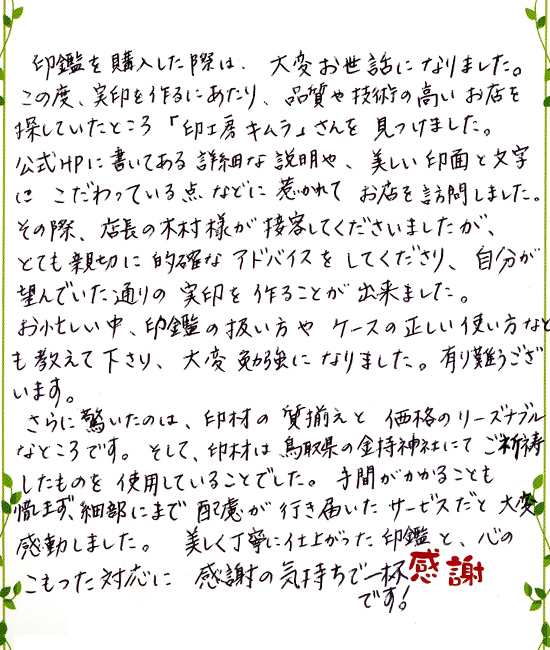 印鑑を購入した際は、大変お世話になりました。
この度、実印を作るにあたり、品質や技術の高いお店を
探していたところ「印工房キムラ」さんを見つけました。
公式HPに書いてある詳細な説明や、美しい印面と文字
に こだわっている点などに惹かれて お店を訪問しました。
その際、店長の木村様が接客してくださいましたが、
とても親切に的確なアドバイスをしてくださり、自分が
望んでいた通りの実印を作ることが出来ました。
お忙しい中、印鑑の扱い方やケースの正しい使い方など
も教えて下さり、大変勉強になりました。有り難うござ
います。
さらに驚いたのは、印材の質揃えと価格のリーズナブル
なところです。そして、印材は鳥取県の金持神社にてご祈祷
したものを使用していることでした。手間がかかることも
惜しまず、細部にまで配慮が行き届いたサービスだと大変
感動しました。美しく丁寧に仕上がった印鑑と、心の
こもった対応に 感謝の気持ちで一杯感謝
です!